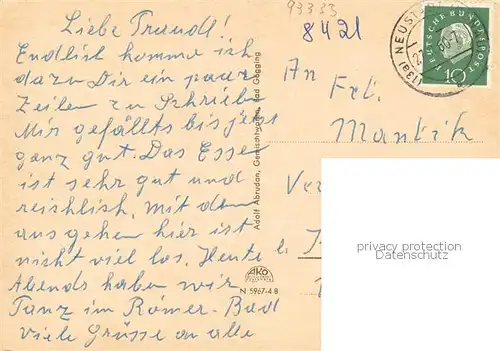 93333
8421
Liebe Traudl!
Endlich komme ich
dazu Dir ein paar
Zeilen zu schreiben
Mir gefällts bis jetzt
ganz gut. Das Essen
ist sehr gut und
reichlich. Mit dem
ausgehen hier ist
nicht viel los. Heute
Abends haben wir
Tanz im Römer-Bad
viele Grüsse an alle
Adolf Abrudan, Gemischtwaren, Bad Gögging
AKO
N 5967-4 B
(13a) NEUST
DEUTSCHE BUNDESPOST
10
An
Frl.
privacy protection
Datenschutz